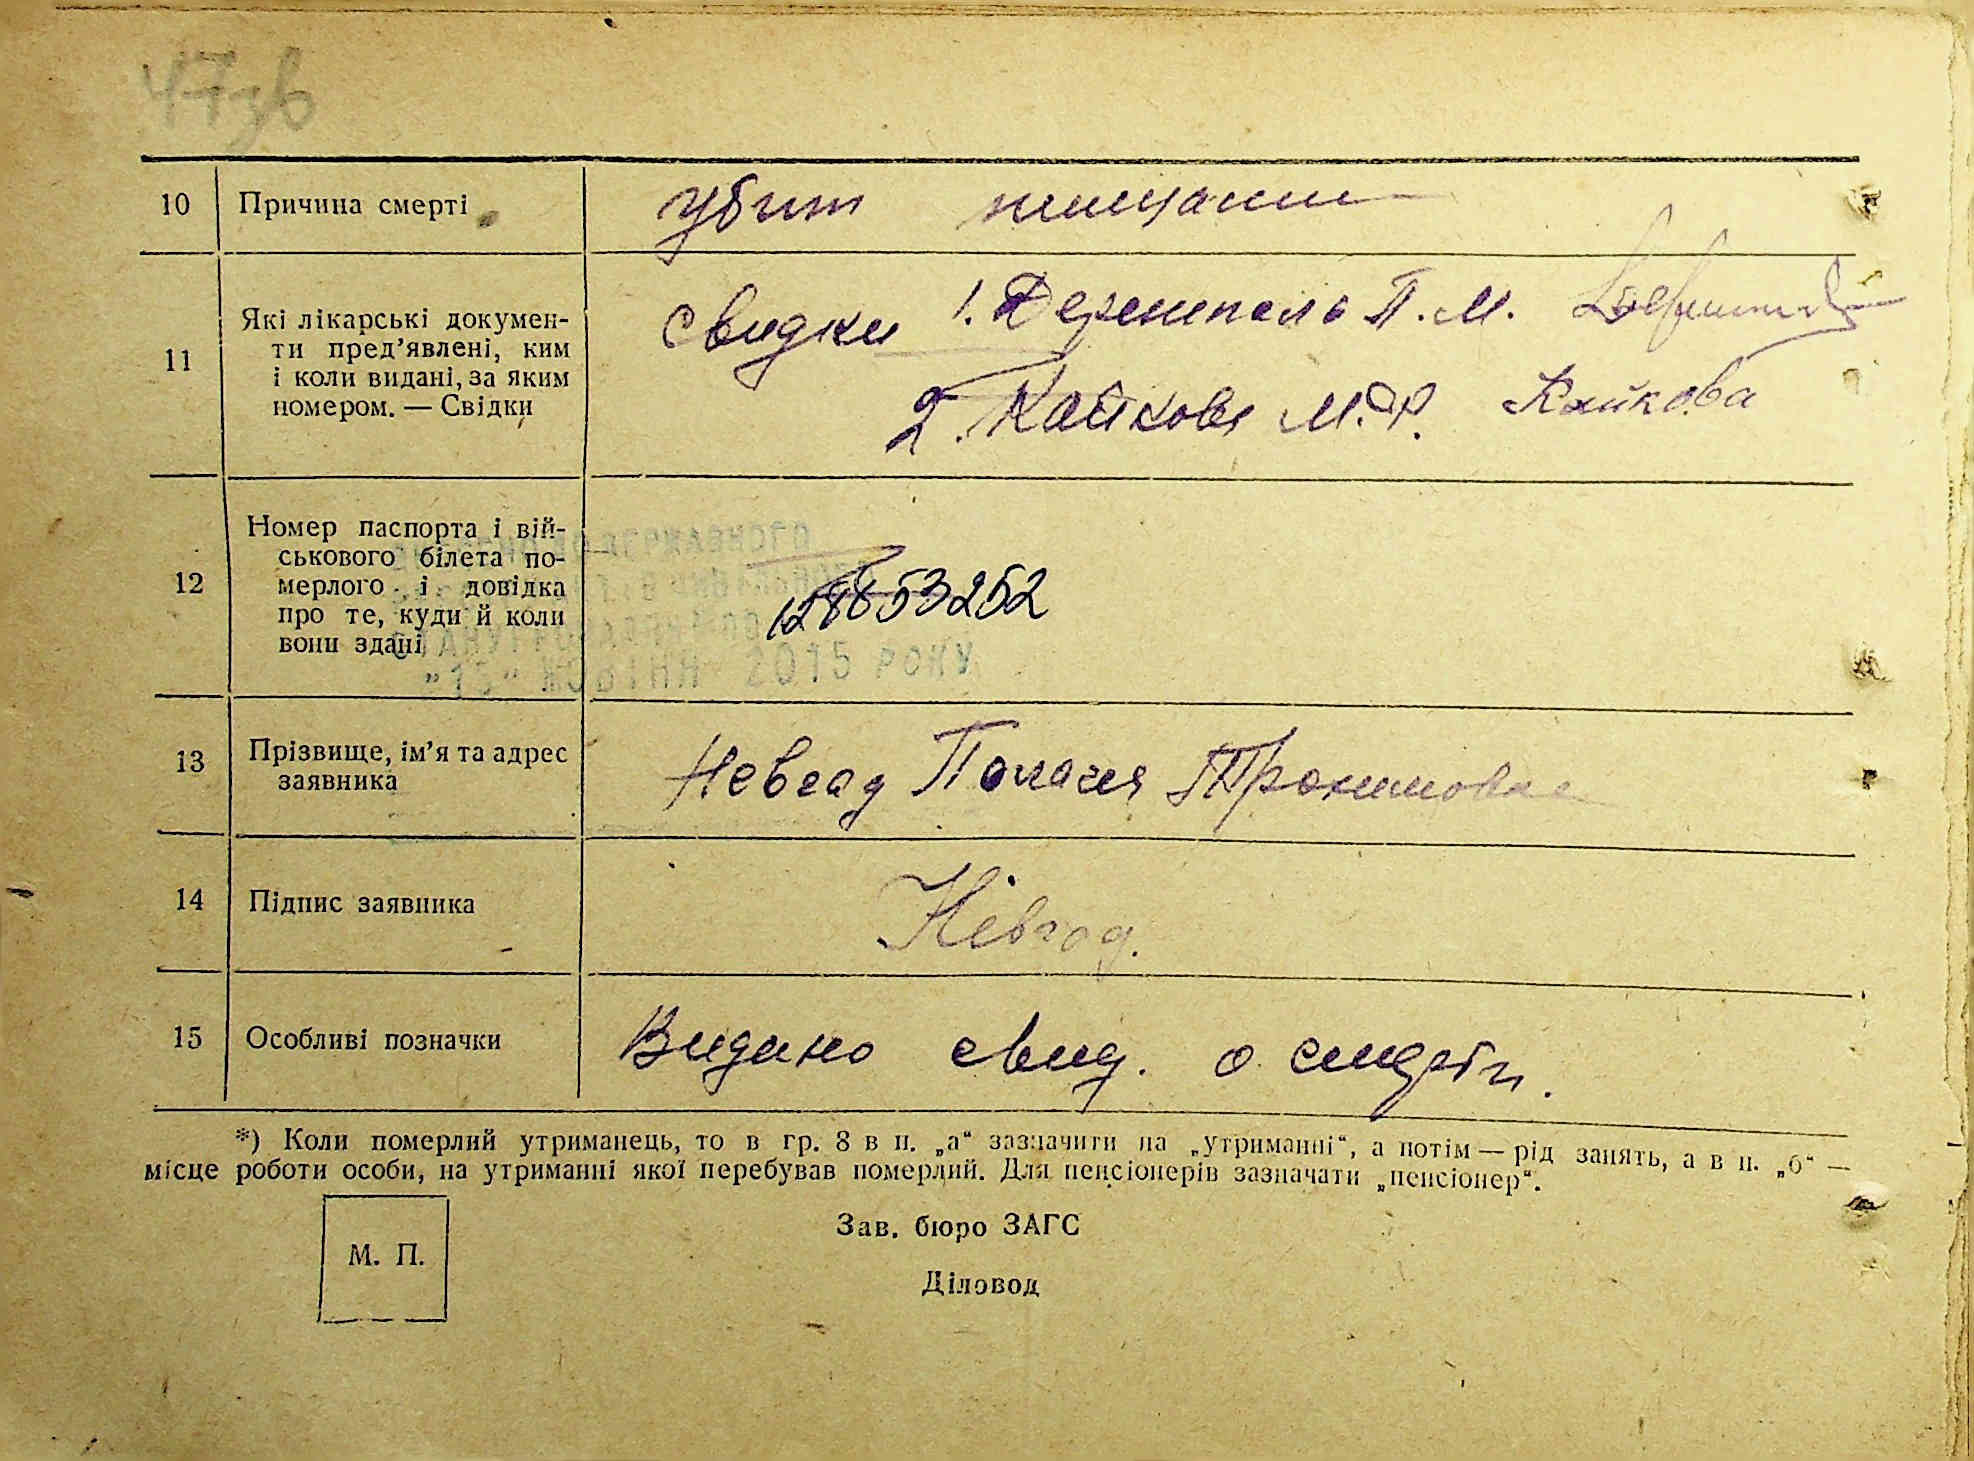 47зв
10 Причина смерті убит немцами
11 Які лікарські докумен-
ти пред'явлені, ким
і коли видані, за яким
номером. — Свідки
свидки 1. П. М.
2. Кайкова М. Кайкова
12 Номер паспорта і вій-
ськового білета по-
мерлого і довідка
про те, куди й коли
вони здані
ДЕРЖАВНОГО
"15" 2015 РОКУ
128853252
13 Прізвище, ім'я та адрес
заявника
Невгад Пелагея Трохимовна
14 Підпис заявника Невгод.
15 Особливі позначки Видано свид. о смерти.
*) Коли померлий утриманець, то в гр. 8 в п. „а“ зазначити на „утриманні“, а потім — рід занять, а в п. „б“ —
місце роботи особи, на утриманні якої перебував померлий. Для пенсіонерів зазначати „пенсіонер“.
М. П.
Зав. бюро ЗАГС
Діловод